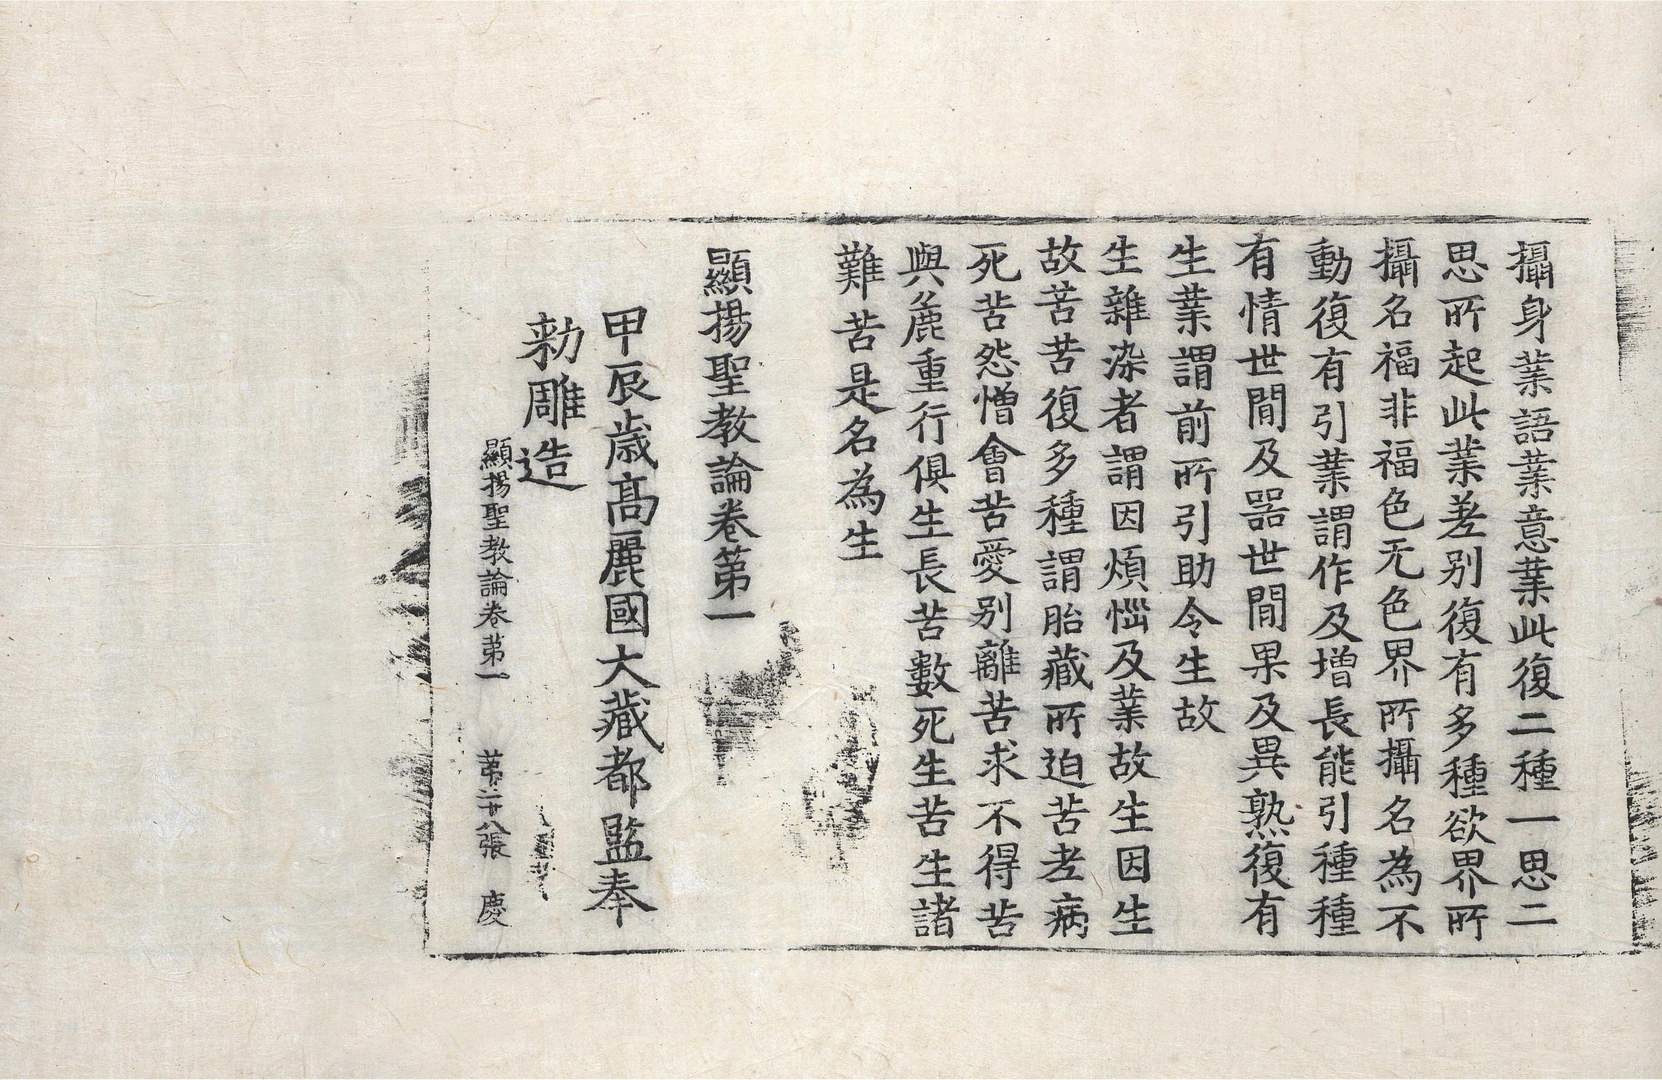 攝身業語業意業此復二種一思二
思所起此業差别復有多種欲界所
攝名福非福色无色界所攝名為不
動復有引業謂作及增長能引種種
有情世間及器世間果及異熟復有
生業謂前所引助令生故
生雜染者謂因煩惱及業故生因生
故苦苦復多種謂胎藏所迫苦老病
死苦怨憎會苦愛别離苦求不得苦
與麁重行俱生長苦數死生苦生諸
難苦是名為生
顯揚聖教論卷第一
甲辰歲高麗國大藏都監奉
勑雕造
顯揚聖教論卷第一 第二十八張 慶